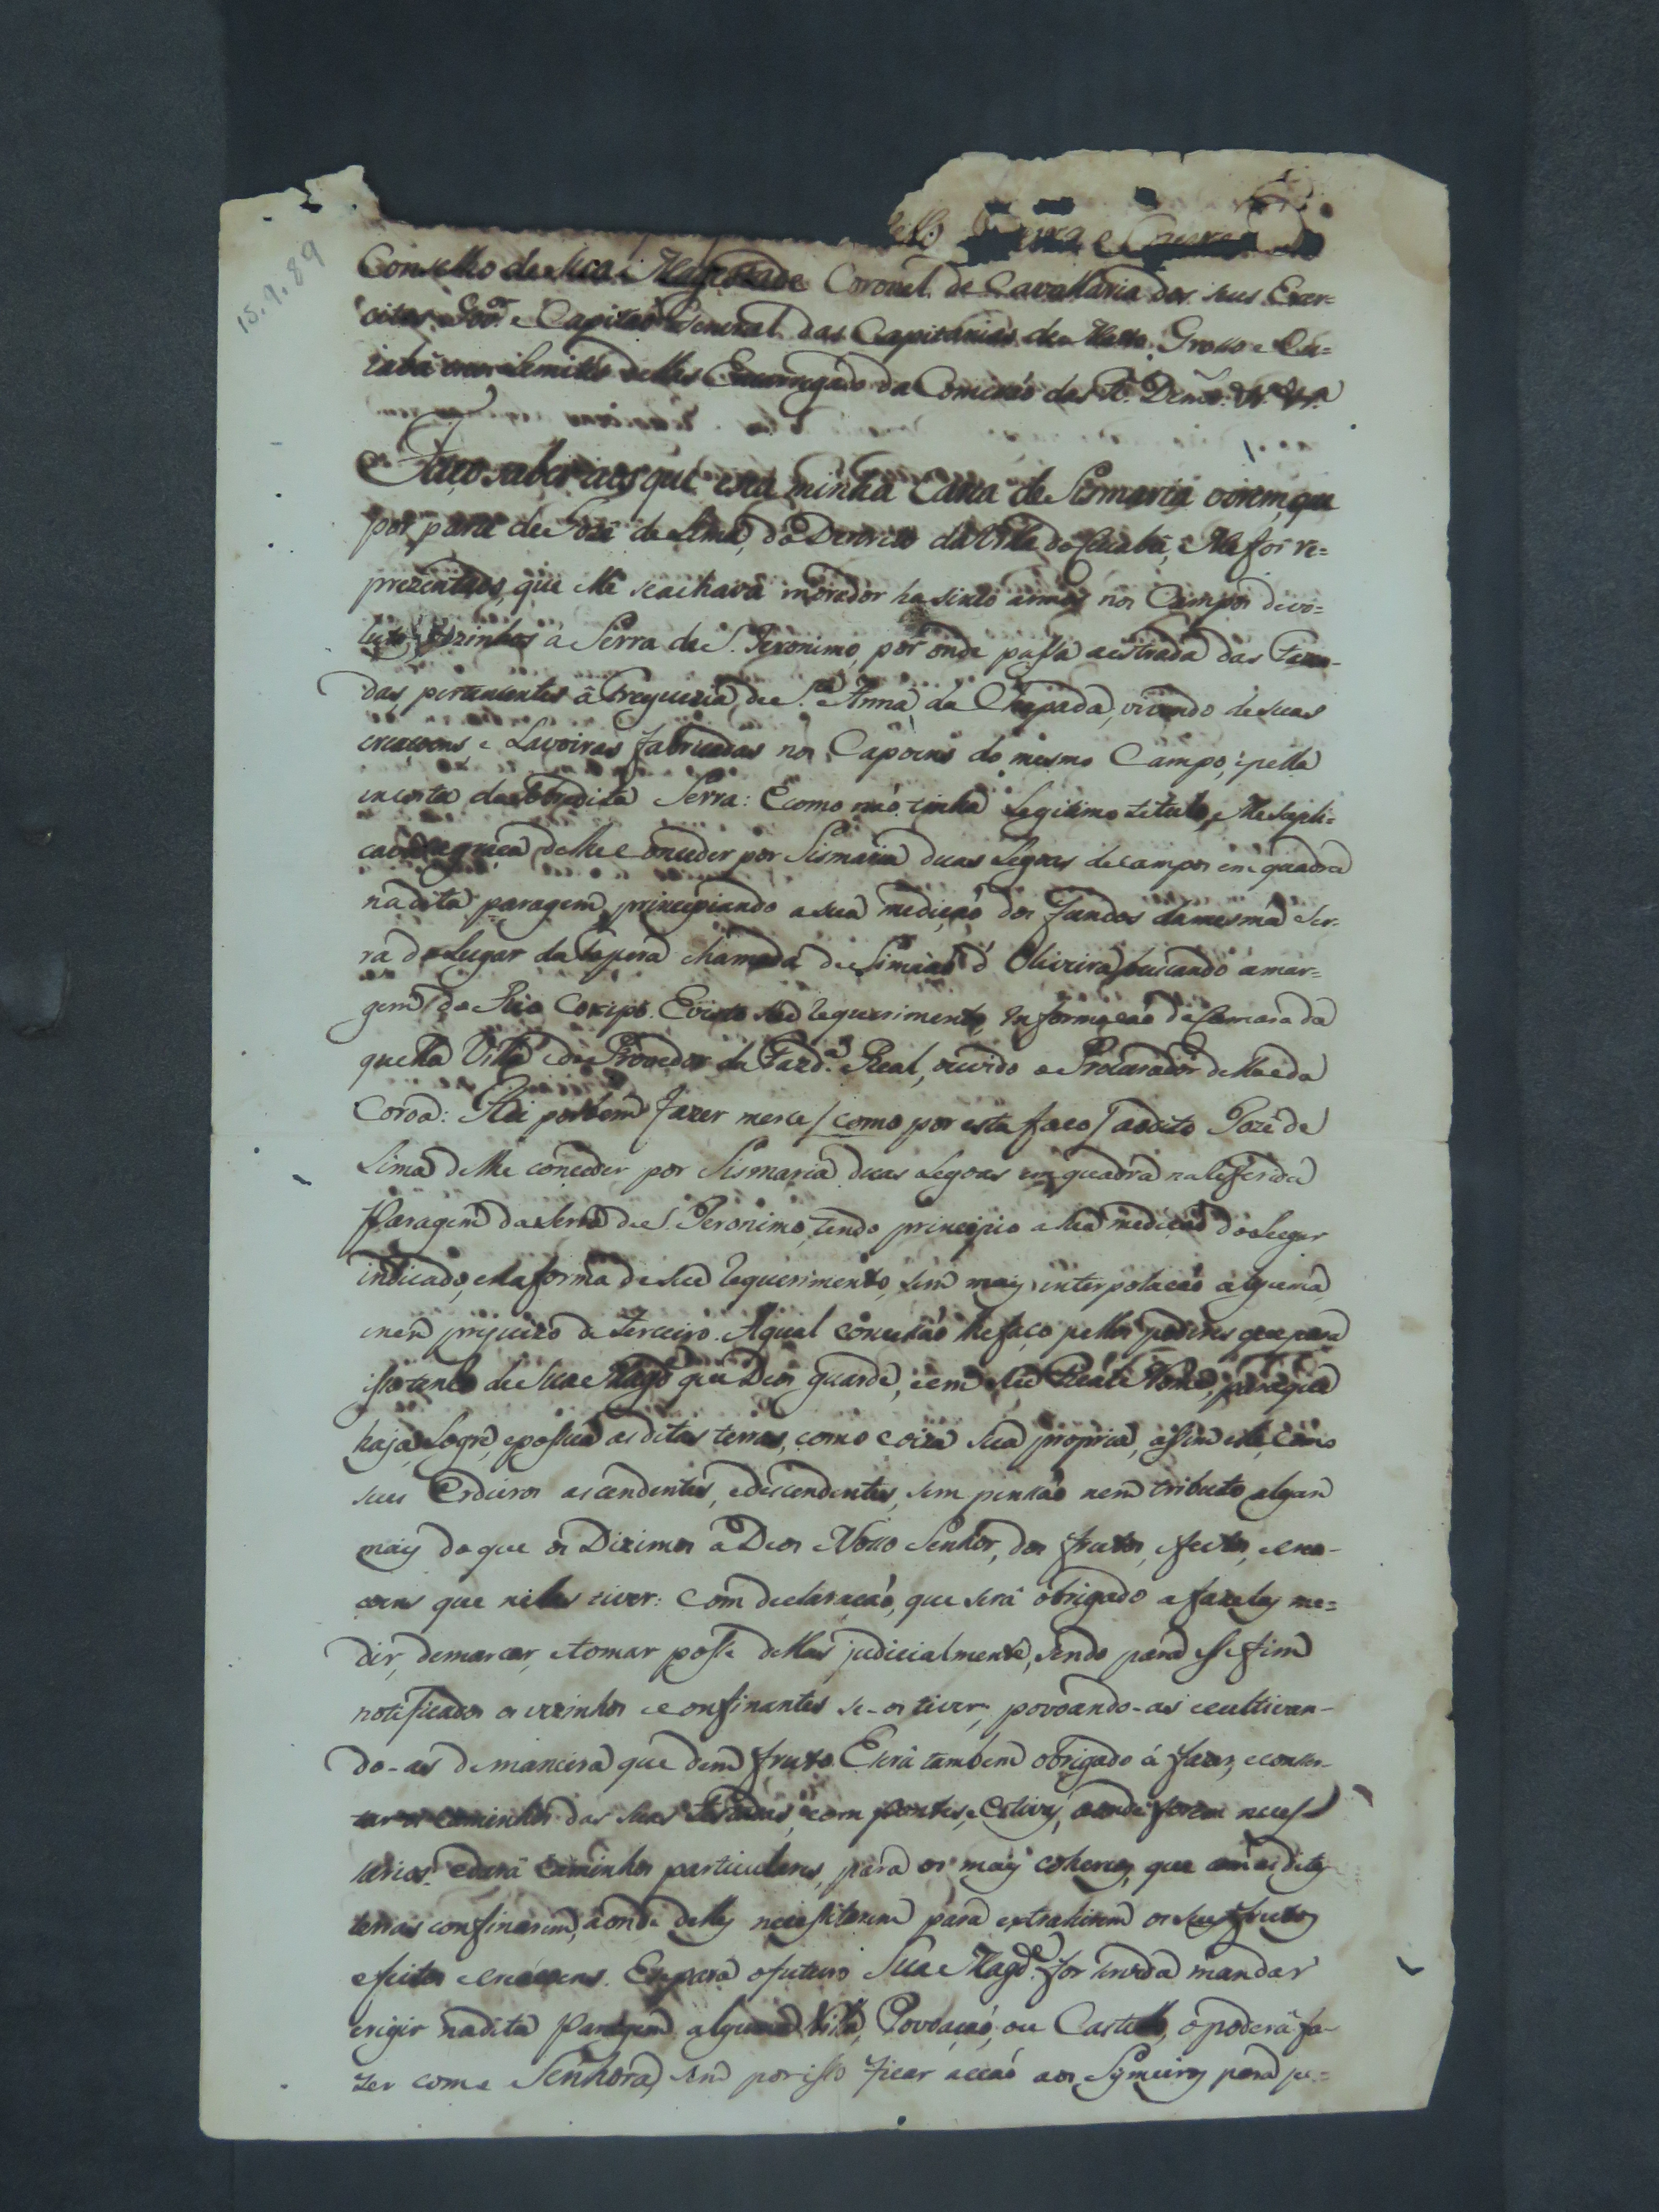 15.9.89
Conselho de Sua Magestade Coronel de Cavallaria dos seus Exer=
citos Gov.or e Capitaõ General das Capitanias de Matto Grosso e Cu=
iabá e seus Limites Encarregado da Comissaõ das R. Demc.
Faço saber aos que esta minha Carta de Sismaria virem, que
por parte de Jozé de Lima, do Destricto da Villa do Cuiabá, Me foi re=
prezentado, que elle se achava morador ha sinco annos nos Campos devo=
lutos vezinhos á Serra de S. Jeronimo, por onde passa a estrada das Fazen-
das, pertencentes á Freguezia de S.ta Anna da Chapada, vivendo de suas
creaçoens e Lavoiras fabricadas nos Capoens do mesmo Campo, e pella
encosta da sobredita Serra: E como naõ tinha Legitimo titulo, Me supli=
cava a graça de lhe conceder por Sismaria duas Legoas de campos em quadra
na dita paragem, principiando a sua mediçaõ dos fundos da mesma Ser=
ra do Lugar da tapera chamada de Simiaõ d' Oliveira, buscando a mar=
gem do Rio Coxipó. E visto seu requerimento, informaçaõ da Camara da
quella Villa e do Provedor da Fazd.a Real, ouvido o Procurador della e da
Coroa: Hei por bem fazer merce / como por esta faço / ao dito Jozé de
Lima de lhe conceder por Sismaria duas Legoas em quadra na referida
Paragem da Serra de S. Jeronimo, tendo principio a sua mediçaõ do Lugar
indicado, e na forma de seu requerimento, sem mais interpolaçaõ alguma,
e nem prejuizo de Terceiro. A qual concessaõ lhe faço pellos poderes que para
isso tenho de Sua Magd.e que Deos guarde, e em seu Real Nome, para que
haja, Logre, e possua as ditas terras, como coiza sua propria, assim elle, como
seus Erdeiros ascendentes, e descendentes, sem pensaõ nem tributo algum
mais do que os Dizimos a Deos Nosso Senhor, dos frutos, efeitos, e crea-
çoens que nellas tiver: Com declaraçaõ, que será obrigado a fazelas me=
dir, demarcar, e tomar posse dellas judicialmente, sendo para esse fim
notificados os vezinhos e confinantes se-os tiver; povoando-as e cultivan-
do-as de maneira que dem fruto. E será tambem obrigado á fazer, e conser-
var os Caminhos das suas testadas, com pontes, e estivas, aonde forem neces-
sarios: e dará Caminhos particulares, para os mais Coherêos, que com as ditas
terras confinarem, aonde delles necessitarem para extrahirem os seus frutos
efeitos e creaçoens. E se para o futuro Sua Magd.e for servida mandar
erigir na dita Paragem alguma Villa, Povoaçaõ, ou Castello, o poderá fa-
zer como Senhora, sem por isso ficar acçaõ aos Sismeiros para pe=